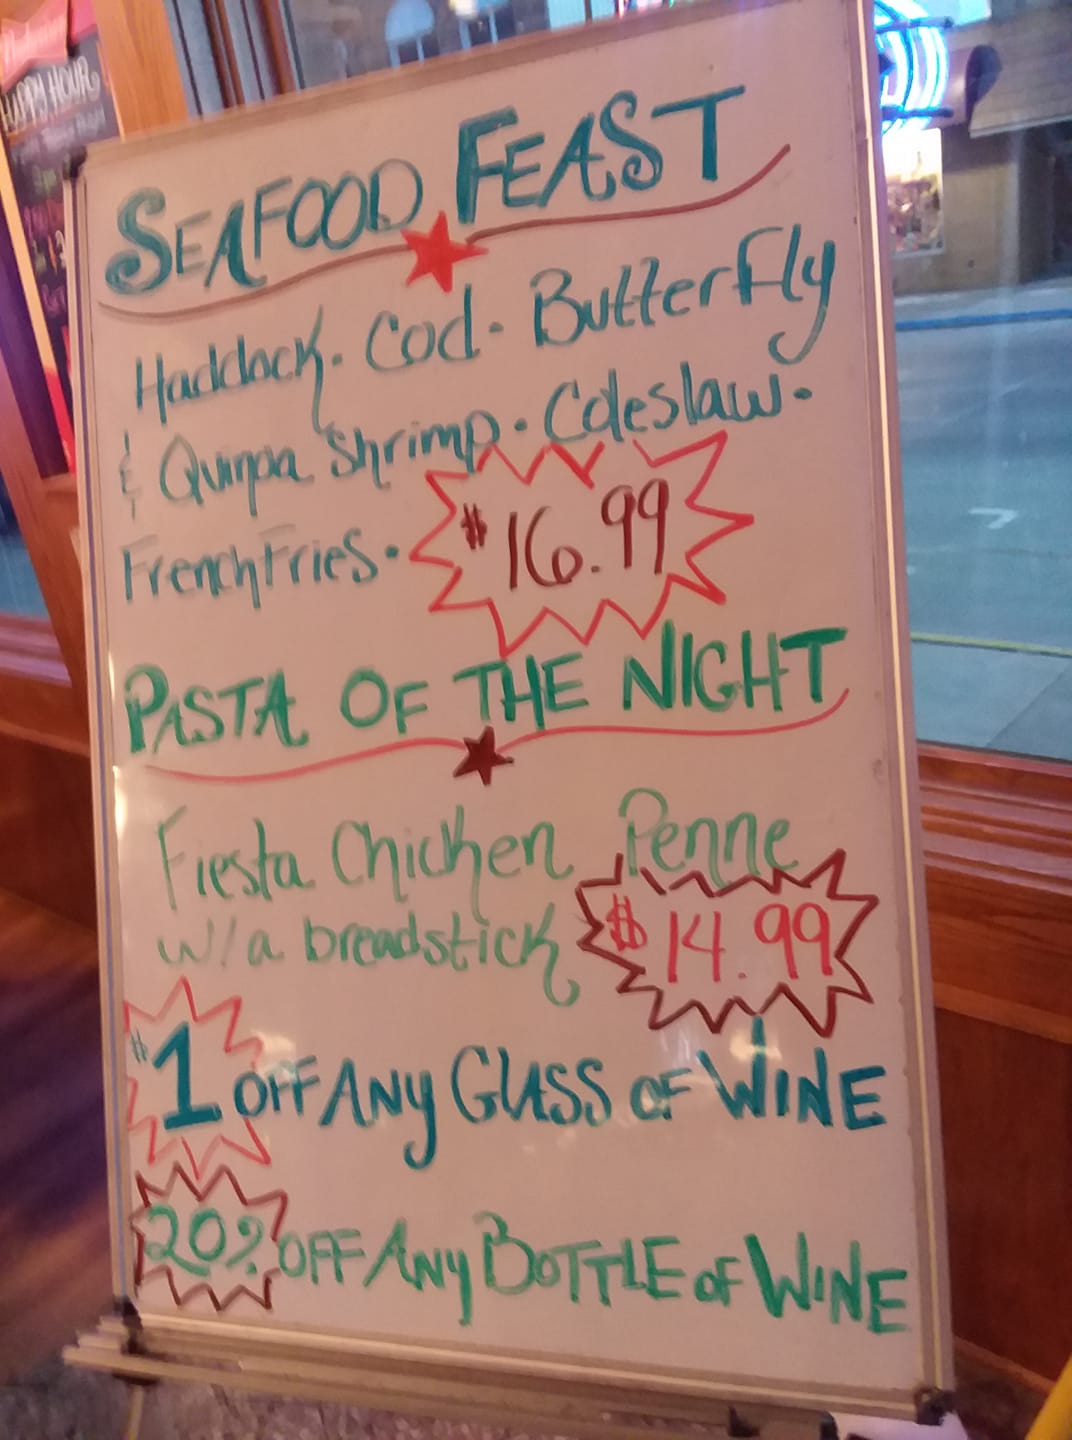 HAPPY HOUR
SEAFOOD FEAST
Haddock. Cod. Butterfly
& Quinoa Shrimp. Coleslaw.
French Fries. $16.99
PASTA OF THE NIGHT
Fiesta Chicken Penne
w/a breadstick $14.99
$1 OFF ANY GLASS OF WINE
20% OFF ANY BOTTLE OF WINE